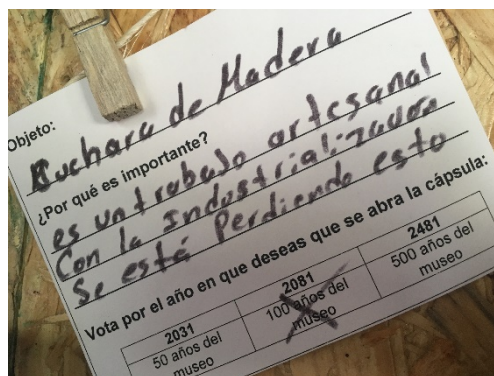 Objeto:
Cuchara de Madera
¿Por qué es importante?
es un trabajo artesanal
Con la Industrializadora
Se está Perdiendo esto
Vota por el año en que deseas que se abra la cápsula:
2031 2081 2481
50 años del museo 100 años del museo 500 años del museo